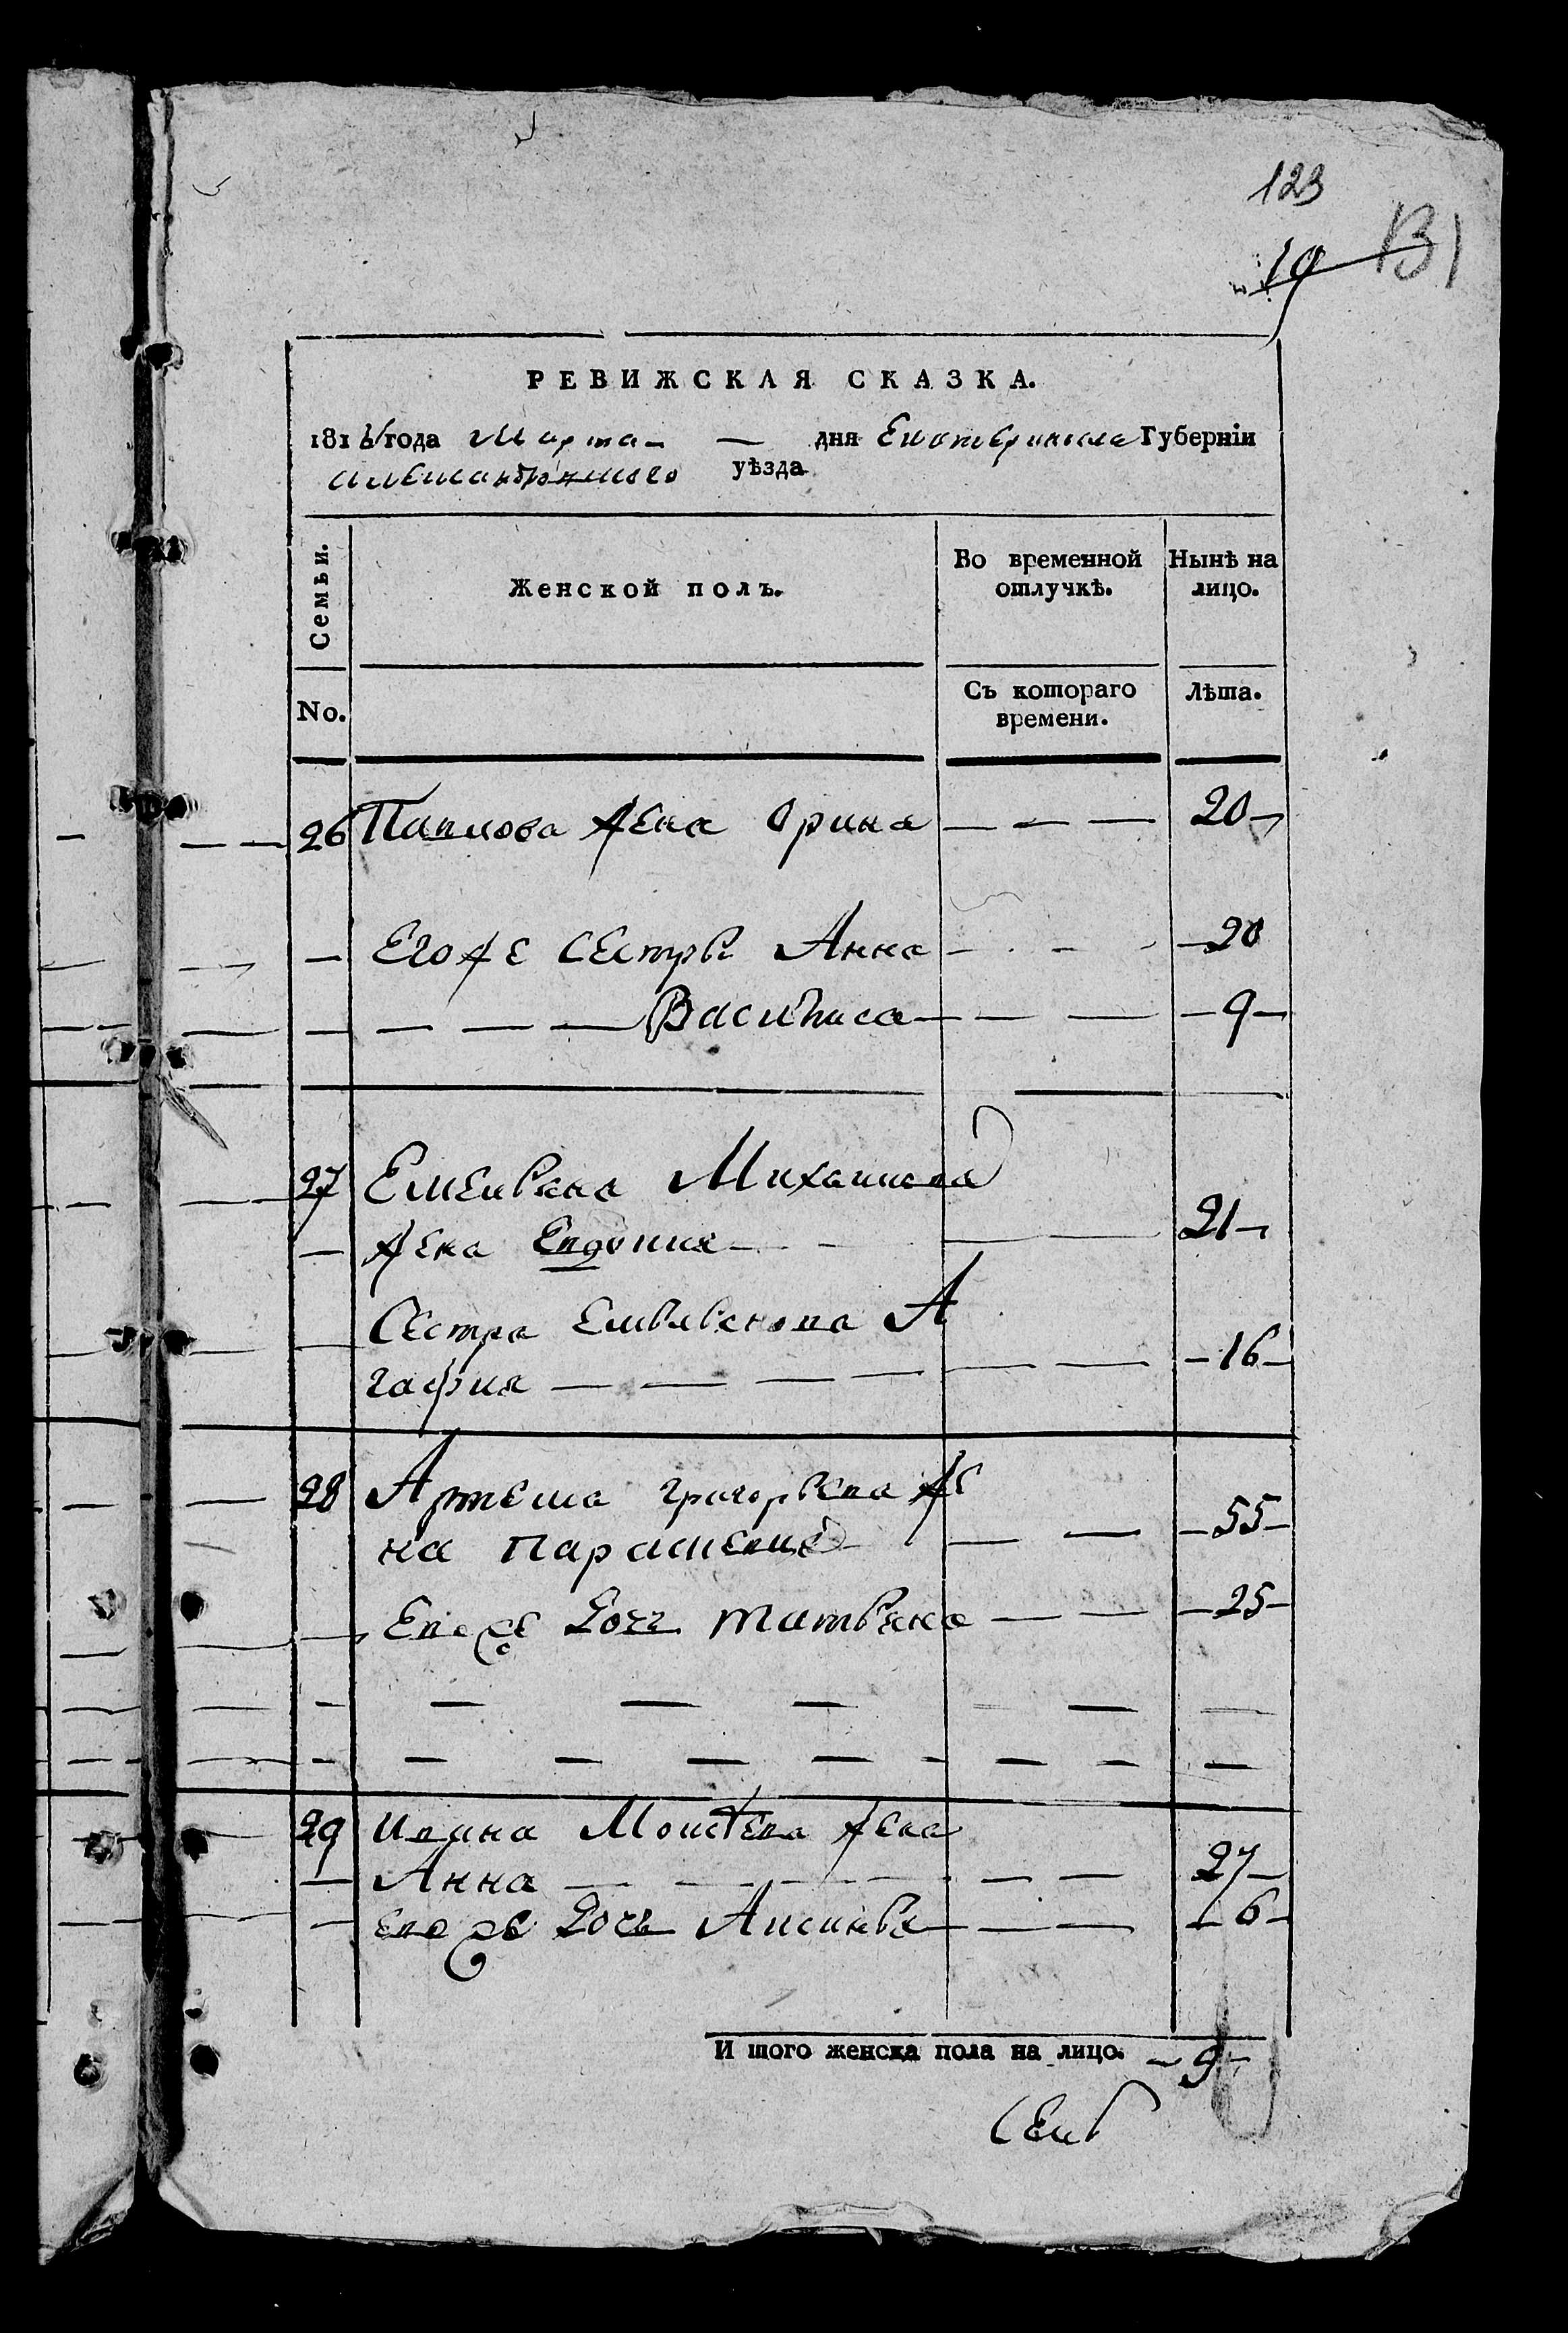 123
19 131
РЕВИЖСКАЯ СКАЗКА.
1816 года Марта — дня Екатеринослав Губернїи
Александрискаго — уѣзда
Семьи. Женской полъ. Во временной отлучкѣ. Нынѣ на лицо.
No. Съ котораго времени. Лѣта.
26 Павлова жена Орина — — — 20 —
— Егоже сестры Анна — - — — 20
— — — — Василиса — — — — 9 —
27 Емельяна Михаилова
— жена Евдокия — — — 21 —
Сестра Емельянова А
гафия — — — — — — — 16 —
28 Артема Григорьева же
на Парасковия — — — 55 —
Ея же дочь Татьяна — — — 25 —
— — — — — — —
— — — — — — — — — —
29 Ивана Моисеева жена
— Анна — — — — — — 27 —
— ея же дочь Аксинья — — — 6 —
И того женска пола на лицо. — 9 —
Сель